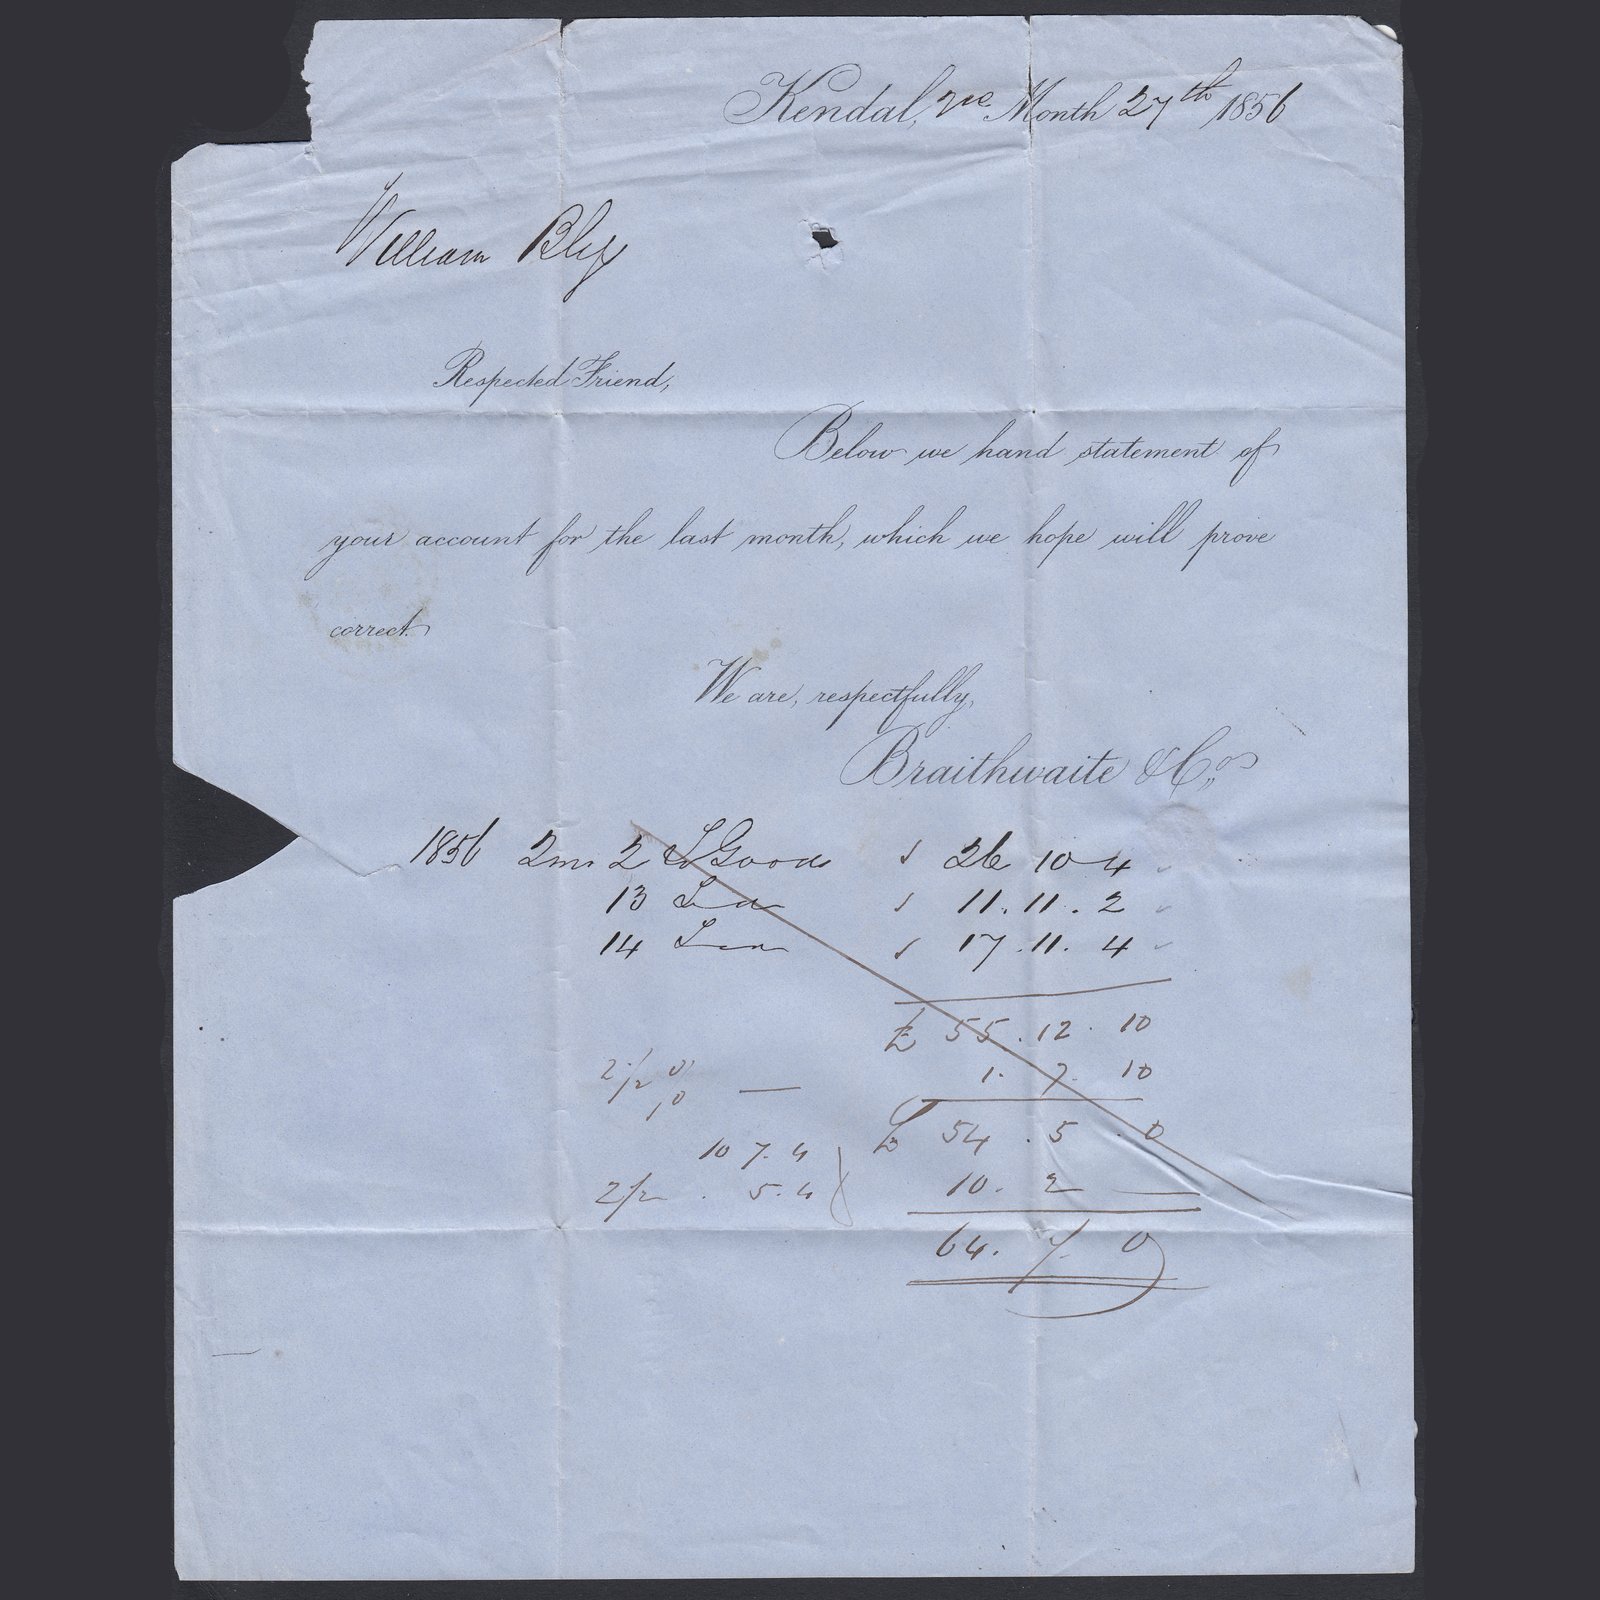 Kendal, 2 Month 27th 1856
William Bly
Respected Friend,
Below we hand statement of
your account for the last month, which we hope will prove
correct.
We are, respectfully,
Braithwaite & Cos
1856 2mo 2 To Goods 26 10 4
13 11.11.2
14 17.11.4
£ 55.12.10
2½ % — 1. 7. 10
£ 54.5.0
10 7.4
2½ . 5.4 10. 2 —
64. 7. 0